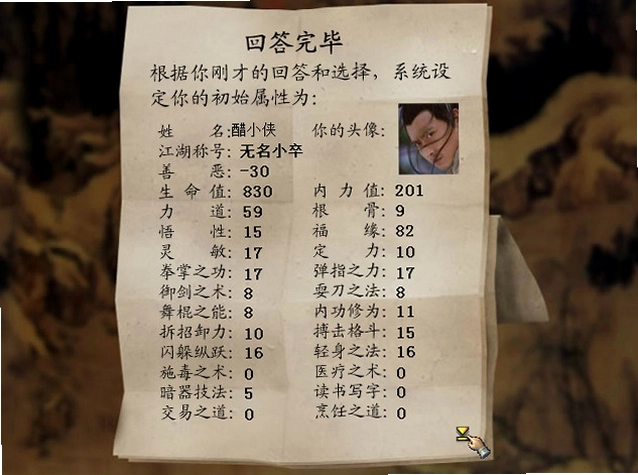 回答完毕
根据你刚才的回答和选择，系统设
定你的初始属性为：
姓名：醋小侠 你的头像：
江湖称号：无名小卒
善恶：-30
生命值：830 内力值：201
力道：59 根骨：9
悟性：15 福缘：82
灵敏：17 定力：10
拳掌之功：17 弹指之力：17
御剑之术：8 耍刀之法：8
舞棍之能：8 内功修为：11
拆招卸力：10 搏击格斗：15
闪躲纵跃：16 轻身之法：16
施毒之术：0 医疗之术：0
暗器技法：5 读书写字：0
交易之道：0 烹饪之道：0